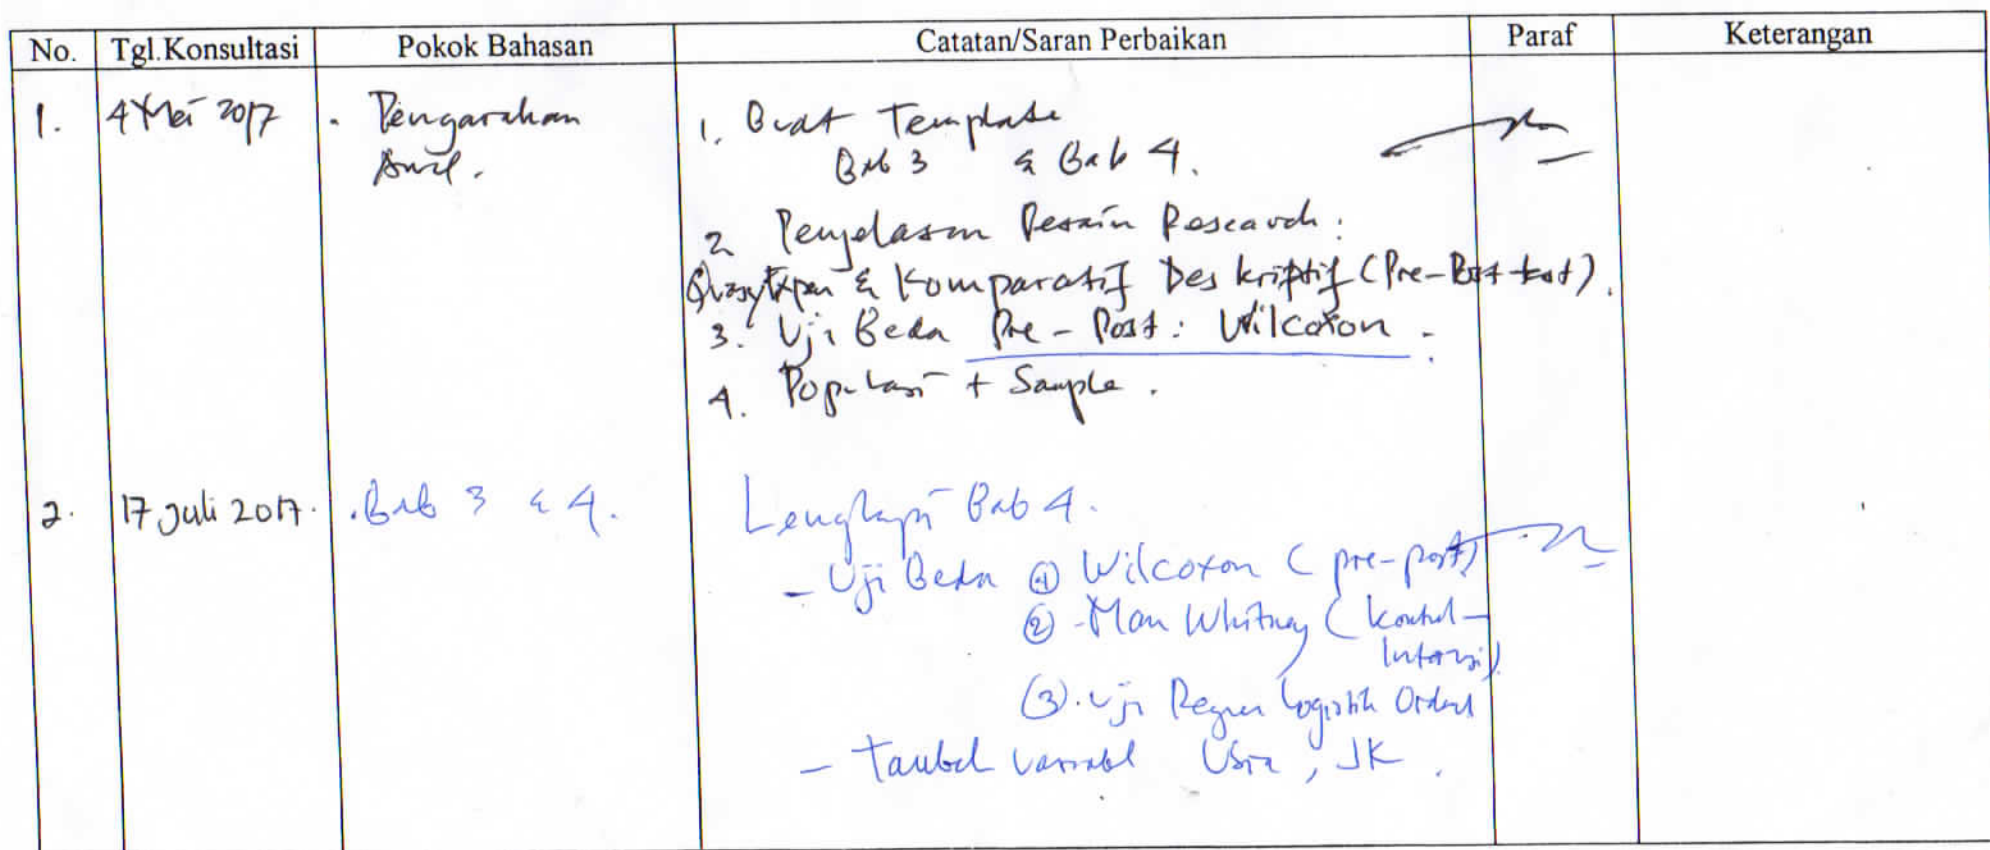 No. Tgl.Konsultasi Pokok Bahasan Catatan/Saran Perbaikan Paraf Keterangan
1. 4 Mei 2017 . Pengarahan
Awal.
1. Buat Template
Bab 3 & Bab 4.
2 Penjelasan Desain Research :
& Komparatif Deskriptif (Pre-Post test).
3. Uji Beda Pre - Post : Wilcoxon .
4. Populasi + Sample .
2. 17 Juli 2017. . Bab 3 & 4. Lengkapi Bab 4.
- Uji Beda ① Wilcoxon ( pre-post)
② -Man Whitney ( kontrol -
③. Uji Regresi Logistik Ordinal
- variabel Usia , JK .